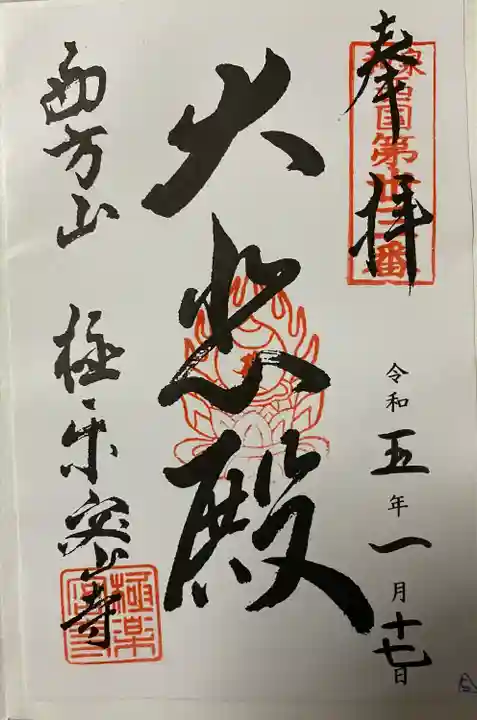 奉拝
西国第
令和五年一月十七日
大悲殿
西方山 極楽密寺
極楽